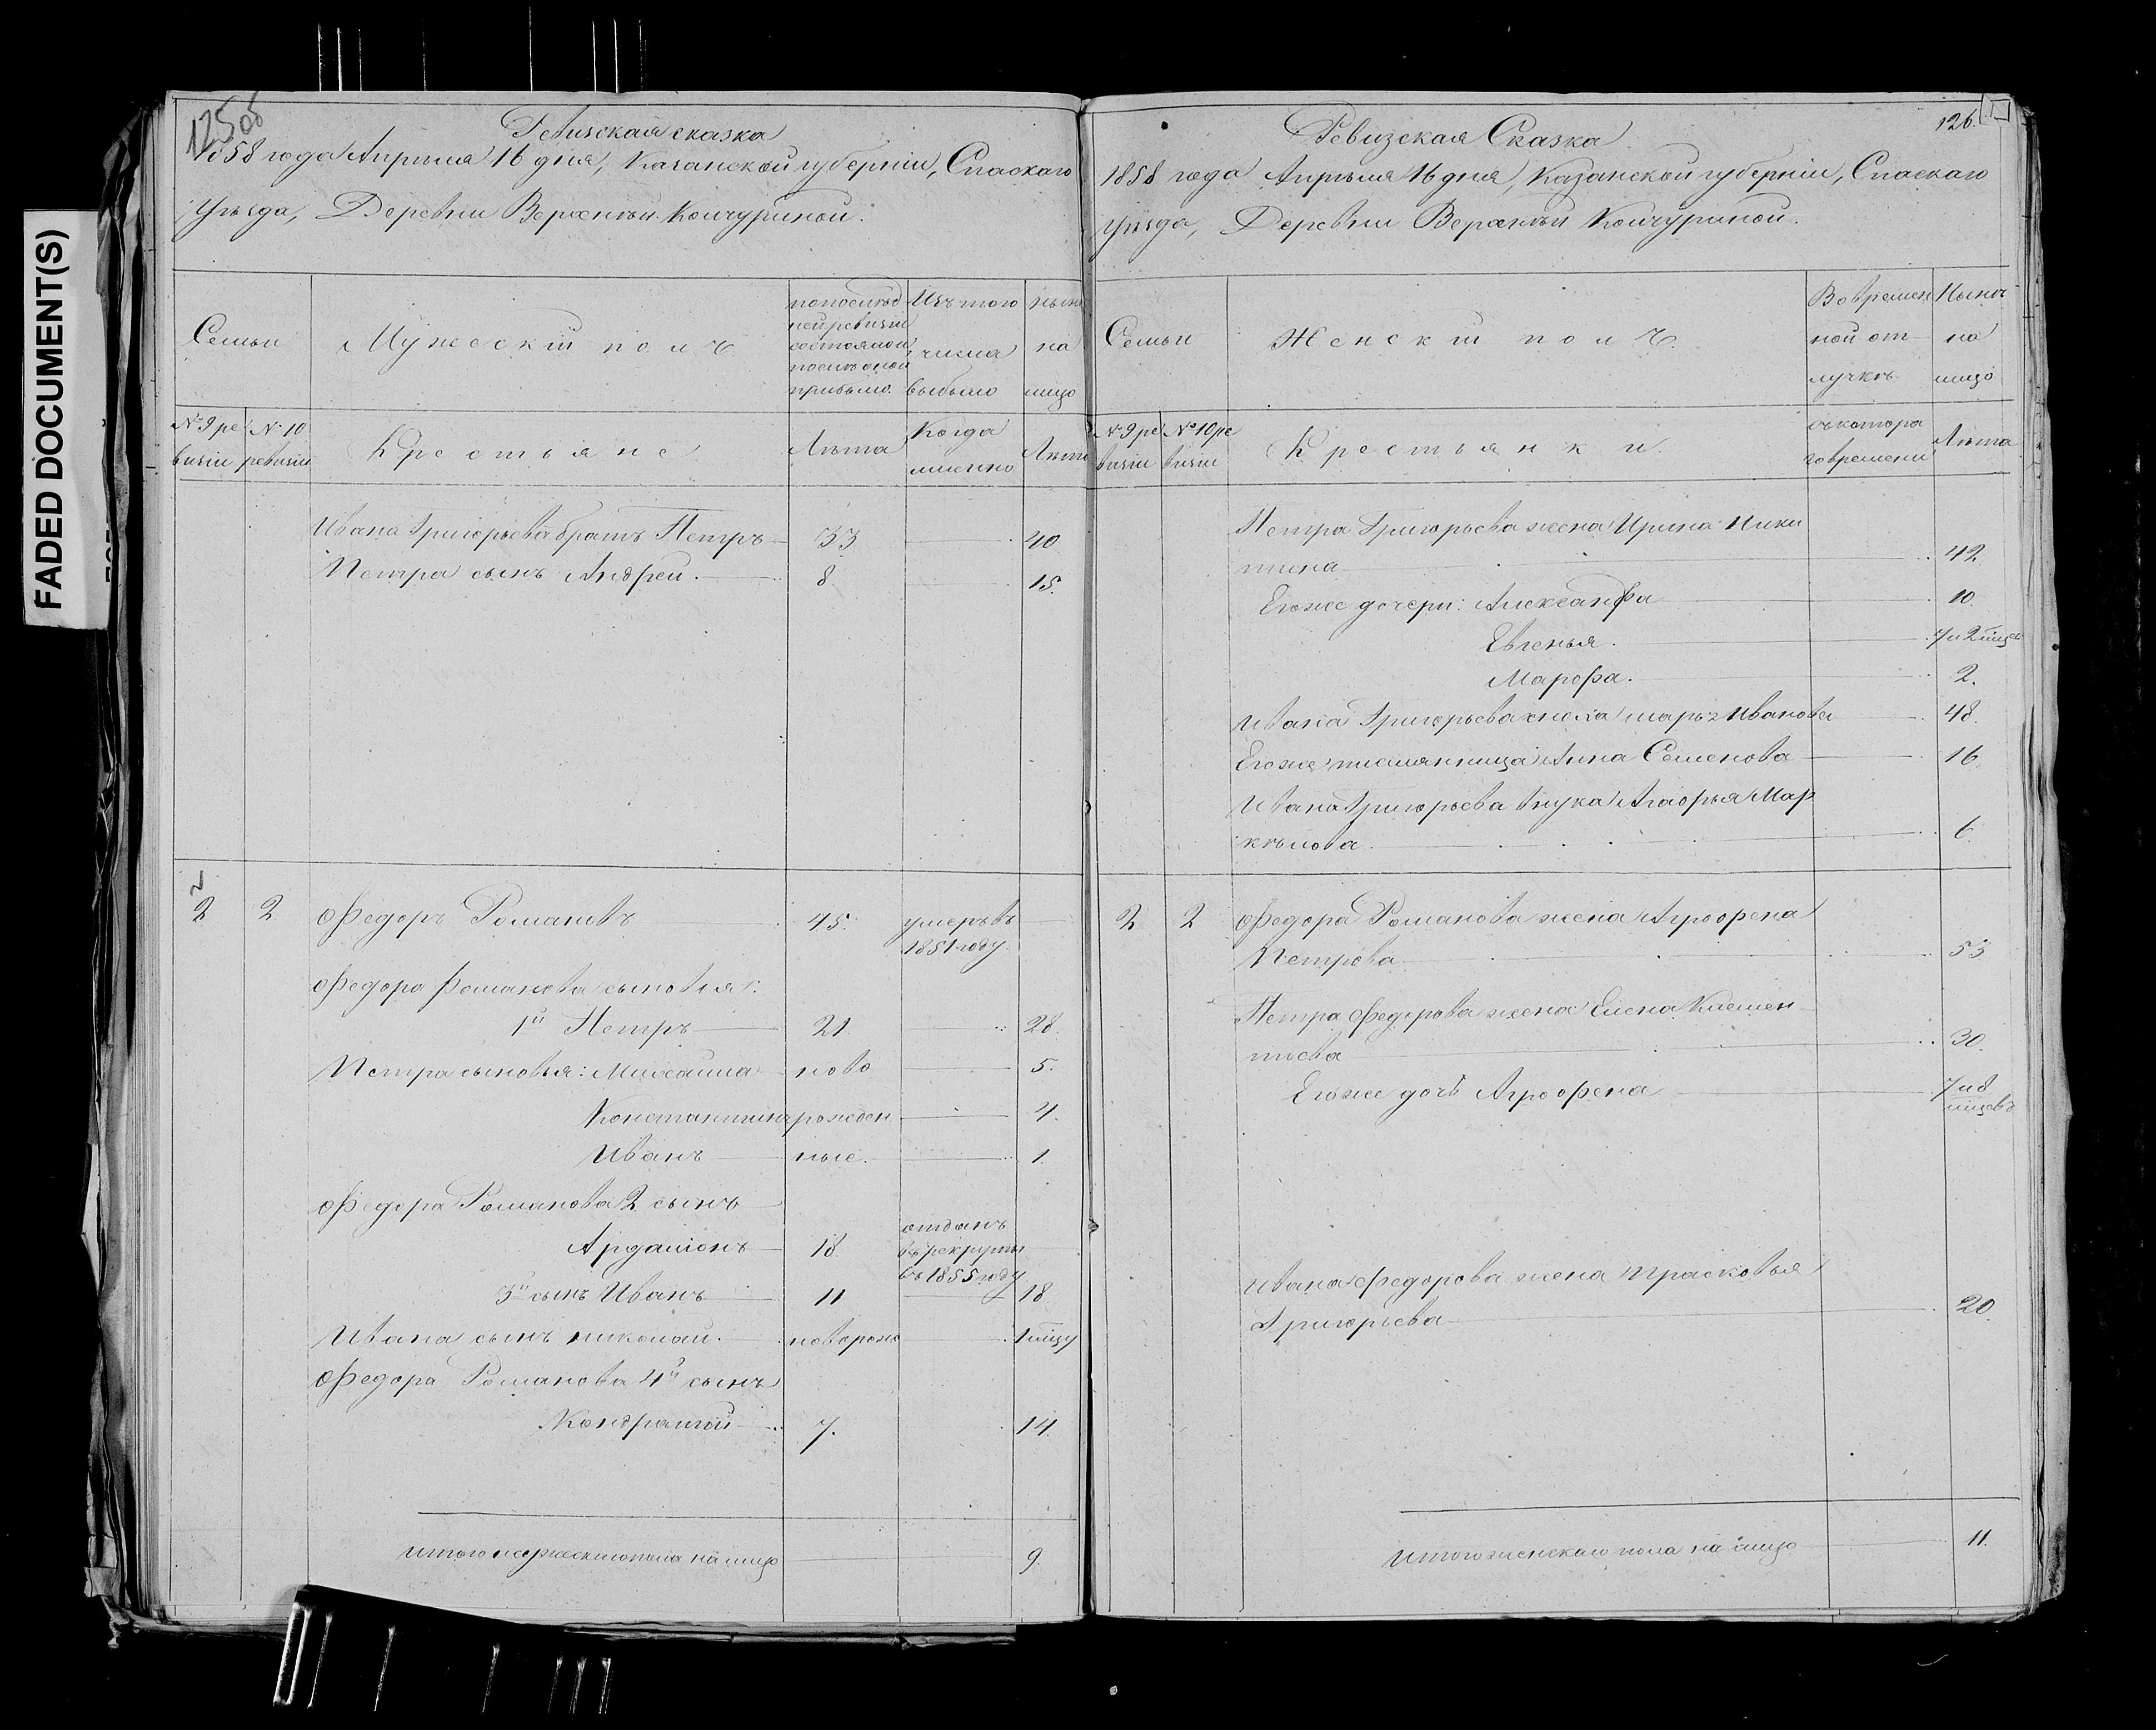 FADED DOCUMENT(S)
125 об
Ревизская сказка
1858 года Апрѣля 16 дня, Казанской губерніи, Спаскаго
уѣзда, Деревни Верхнѣй Кончуриной.
Семьи
Мужескій полъ
по послѣд
ней ревизіи
состояло и
послѣ оной
прибыло.
Изъ того
числа
выбыло
нынѣ
на
лицо
№ 9 ре
визіи
№ 10
ревизіи
Крестьяне
Лѣта
Когда
именно
Лѣта
Ивана Григорьева братъ Петръ 33 40
Петра сынъ Андрей. 8 15.
2 2 Федоръ Романовъ 45. умеръ въ
1851 году.
Федора Романова сыновья:
1й Петръ 21. 28.
Петра сыновья: Михайла ново 5.
Константинъ рожден 4.
Иванъ ные. 1.
Федора Романова 2 сынъ
Ардалiонъ 18 отданъ
въ рекруты
въ 1855 году
3й сынъ Иванъ 11 18
Ивана сынъ николай. новорож 1 мцу
Федора Романова 4й сынъ
Кондратій 7. 14.
итого мужескаго пола на лицо 9.
126.
Ревизская Сказка
1858 года Апрѣля 16 дня, Казанской губерніи, Спаскаго
уѣзда, Деревни Верхнѣй Кончуриной.
Семьи
Женскій полъ
Во времен
ной от
лучкѣ
Нынѣ
на
лицо
№ 9 ре
визіи
№ 10 ре
визіи
Крестьянки.
съ котора
го времени
Лѣта
Петра Григорьева жена Ирина Ники
тина 42
Его же дочери: Александра 10.
Евгенья. 7 и 2 мцев
Марфа. 2.
Ивана Григорьева жена марья Иванова 48.
Его же племянница Анна Семенова 16.
Ивана Григорьева внука Мар
кѣлова. 6.
2 2 Федора Романова жена Агрофена
Петрова 53
Петра Федорова жена Елена Клемен
тьева 30.
Его же дочь Агрофена 7 и 8
мцевъ
Ивана Федорова жена Прасковья
Григорьева 20
итого женскаго пола на лицо 11.